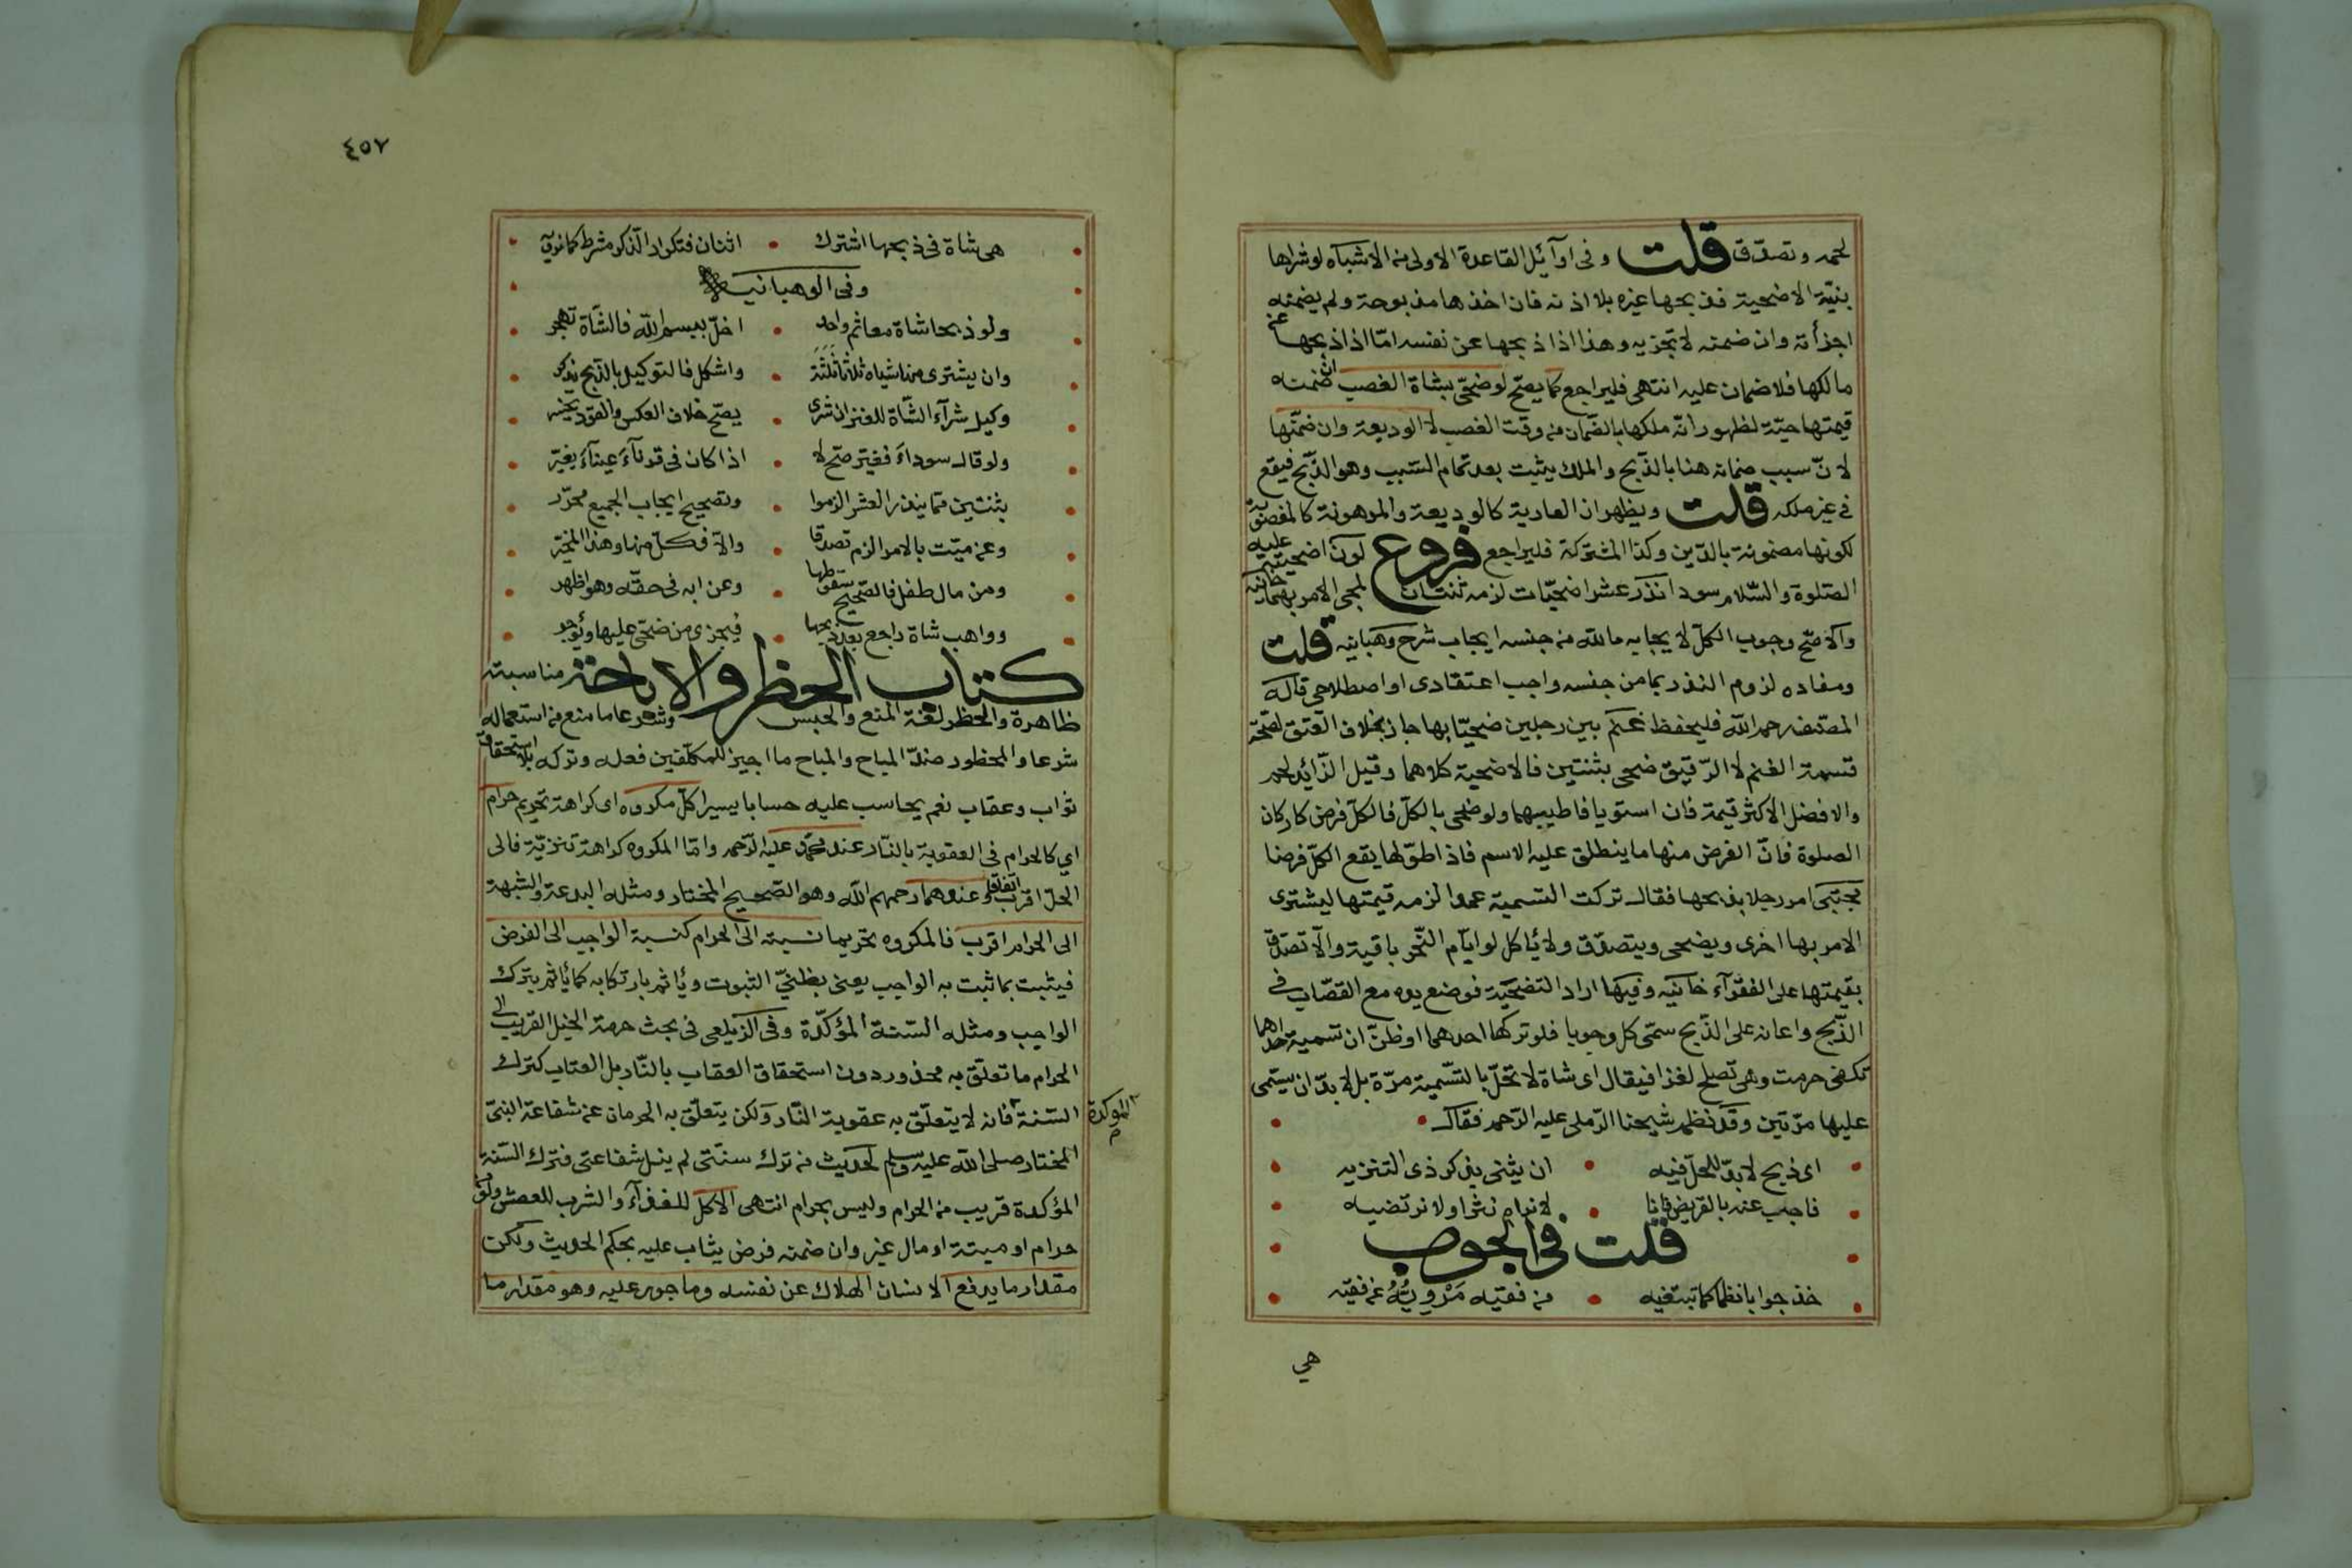 لحمه وتصدّق قلت وفى اوآئيل القاعدة الاولى من الاشباه لو شراها
بنيّة الاضحية فذبحها غيره بلا اذنه فان اخذها مذبوحة ولم يضمنه
اجزأته وان ضمنه لا تجزيه وهذا اذا ذبحها عن نفسه امّا اذا ذبحها عن
مالكها فلا ضمان عليه انتهى فليراجع كما يصحّ لو ضحّى بشاة الغصب ان ضمنه
قيمتها حيّة لظهور انّه ملكها بالضّمان من وقت الغصب لا الوديعة وان ضمّنها
لانّ سبب ضمانه هنا بالذّبح والملك يثبت بعد تمام السّبب وهو الذّبح فيقع
فى غير ملكه قلت ويظهر ان العارية كالوديعة والمرهونة كالمغصوبة
لكونها مضمونة بالدّين وكذا المشتركة فليراجع فروع لون اضحيته عليه
الصّلوة والسّلام سودا نذر عشر اضحيّات لزمه ثنتان لمجئ الامر بهما خانيه
والاصّح وجوب الكلّ لايجابه ما لله من جنسه ايجاب شرح وهبانيه قلت
ومفاده لزوم النذر بما من جنسه واجب اعتقادى او اصطلاحى قاله
المصّنف رحمه الله فليحفظ غنم بين رجلين ضحيّا بها جاز بخلاف العتق لصّحة
قسمة الغنم لا الرّقيق ضحى بثنتين فالاضحية كلاهما وقيل الزّائد لحم
والافضل الاكثر قيمة فان استويا فاطيبهما ولو ضحى بالكلّ فالكلّ فرض كاركان
الصلوة فانّ الفرض منها ما ينطلق عليه الاسم فاذا طوّلها يقع الكلّ فرضا
مجتبى امر رجلا بذبحها فقال تركت التسمية عمدا لزمه قيمتها ليشترى
الامر بها اخرى ويضحى ويتصدّق ولا يأكل لو ايّام النّحر باقية والّا تصدّق
بقيمتها على الفقرآء خانيه وفيها اراد التّضحيّة فوضع يده مع القصّاب فى
الذّبح واعانه على الذّبح سمّى كل وجوبا فلو تركها احدهما او ظنّ ان تسمية احدهما
تكفى حرمت وهى تصلح لغزا فيقال اى شاة لا تحلّ بالتّسمية مرّة بل لا بدّ ان يسمّى
عليها مرّتين وقد نظمه شيخنا الرّملى عليه الرّحمه فقال
اى ذبح لا بدّ للحلّ فيه ان يثنى بذكر ذى التنزيه
فاجب عنه بالقريض فانا لا نراه نثرا ولا نرتضيه
قلت فى الجوب
خذ جوابا نظما كما تبتغيه من فقيه مَرْوِيَّةُ عن فقيه
هي
٤٥٧
هى شاة فى ذبحها اشترك اثنان فتكرار الذّكر شرط كما نرويه
وفى الوهبانيه
ولو ذبحا شاة معا ثم واحد اخلّ ببسم الله فالشّاة تهجر
وان يشترى منا شياه ثلاثا ثلثة واشكل فالتوكيل بالذّبح يذكر
وكيل شرآء الشّاة للغنز ان شرى يصّح خلاف العكس والعقود يخسر
ولو قال سوداءَ فغيّر صّح لا اذا كان فى قرنآءَ عينآءَ يغيّر
بثنتين فيما ينذر العشر الزموا وتصحيح ايجاب الجميع محرّر
وعن ميّت بالامر الزم تصدقا والّا فكلّ منها وهذا المخيّر
ومن مال طفل فالصّحيح سقوطها وعن ابه فى حقّه وهو اظهر
وواهب شاة راجع بعد ذبحها فيجزى من ضحّى عليها ويُوجر
كتاب الحظر والاباحة مناسبته
ظاهرة والحظر لغة المنع والحبس وشرعا ما منع من استعماله
شرعا والمحظور ضدّ المباح والمباح ما اجيز للمكلّفين فعله وتركه بلا استحقاق
ثواب وعقاب نعم يحاسب عليه حسابا يسيرا كلّ مكروه اى كراهة تحريم حرام
اي كالحرام فى العقوبة بالنّار عند محمّد عليه الرّحمه وامّا المكروه كراهة تنزيّة فالى
الحلّ اقرب اتفاقا وعندهما رحمهم الله وهو الصّحيح المختار ومثله البدعة والشبهة
الى الحرام اقرب فالمكروه تحريما نسبته الى الحرام كنسبة الواجب الى الفرض
فيثبت بما ثبت به الواجب يعنى بظنّي الثبوت ويأثم بارتكابه كما يأثم بترك
الواجب ومثله السّنة المؤكّدة وفى الزيلعى فى بحث حرمة الخيل القريب الى
الحرام ما تعلق به محذور دون استحقاق العقاب بالنّار بل العتاب كترك
السّنة المؤكدة فانه لا يتعلّق به عقوبة النّار ولكن يتعلّق به الحرمان عن شفاعة النبىّ
المختار صلى الله عليه وسلم لحديث من ترك سنتى لم ينل شفاعتى فترك السّنة
المؤكدة قريب من الحرام وليس بحرام انتهى الاكل للغذآء والشرب للعطش ولو من
حرام او ميتة او مال غيره وان ضمنه فرض يثاب عليه بحكم الحديث ولكن
مقدار ما يدفع الانسان الهلاك عن نفسه وماجور عليه وهو مقدار ما